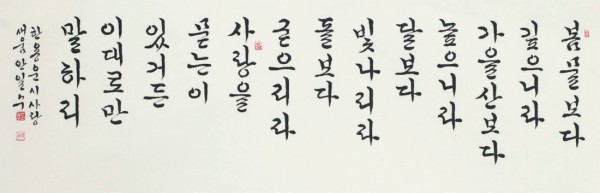 봄물보다
깊으니라
가을산보다
높으니라
달보다
빛나리라
돌보다
굳으리라
사랑을
묻는이
있거든
이대로만
말하리
한용운시 사랑
새움 안일수